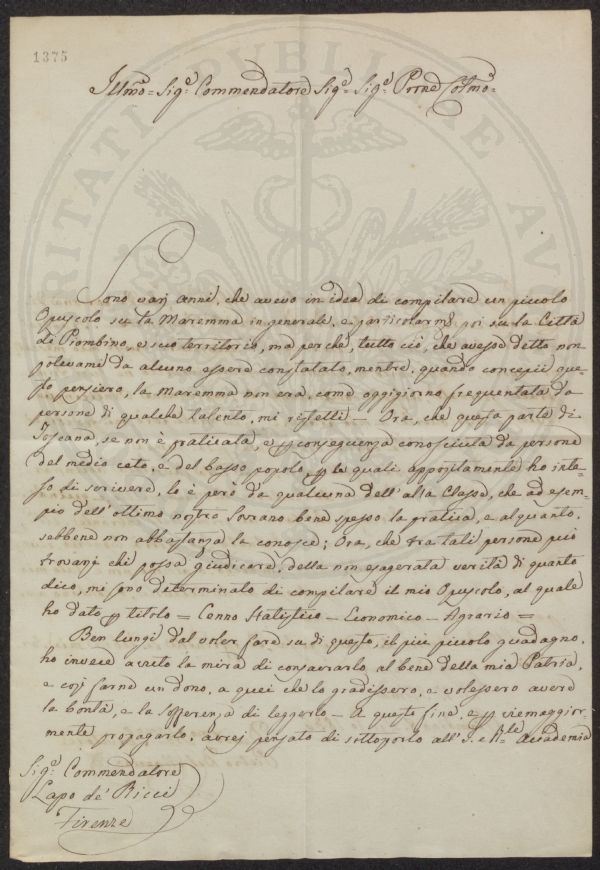 1375
Illmo = Sigr Commendatore Sigr = Sigr Prne Colmo =
Sono varj anni, che avevo in idea di compilare un piccolo
Opuscolo su la Maremma in generale, e particolarme poi su la Città
di Piombino, e suo territorio, ma perchè, tutto ciò, che avesse detto non
polevami da alcuno essere constatato, mentre, quando concepii que=
sto pensiero, la Maremma non era, come oggigiorno frequentata da
persone di qualche talento, mi ristetti _ Ora, che questa parte di
Toscana, se non è praticata, e p conseguenza conosciuta da persone
del medio ceto, e del basso popolo, p le quali appositamente ho inte=
so di scrivere, lo è però da qualcuna dell'alta Classe, che ad esem=
pio dell'ottimo nostro Sovrano bene spesso la pratica, e alquanto,
sebbene non abbastanza la conosce; Ora, che tra tali persone può
trovarsi chi possa giudicare, della non esagerata verità di quanto
dico, mi sono determinato di compilare il mio Opuscolo, al quale
ho dato p titolo = Cenno Statistico _ Economico _ Agrario =
Ben lungi dal voler fare su di questo, il più piccolo guadagno,
ho invece avuto la mira di consacrarlo, al bene della mia Patria,
e così farne un dono, a quei che lo gradissero, e volessero avere
la bontà, e la sofferenza di leggerlo _ A questo fine, e p viemaggior=
mente propagarlo, avrej pensato di sottoporlo all'I. e Rle Accademia
Sigr Commendatore
Lapo de' Ricci
Firenze
PUBBLICAE